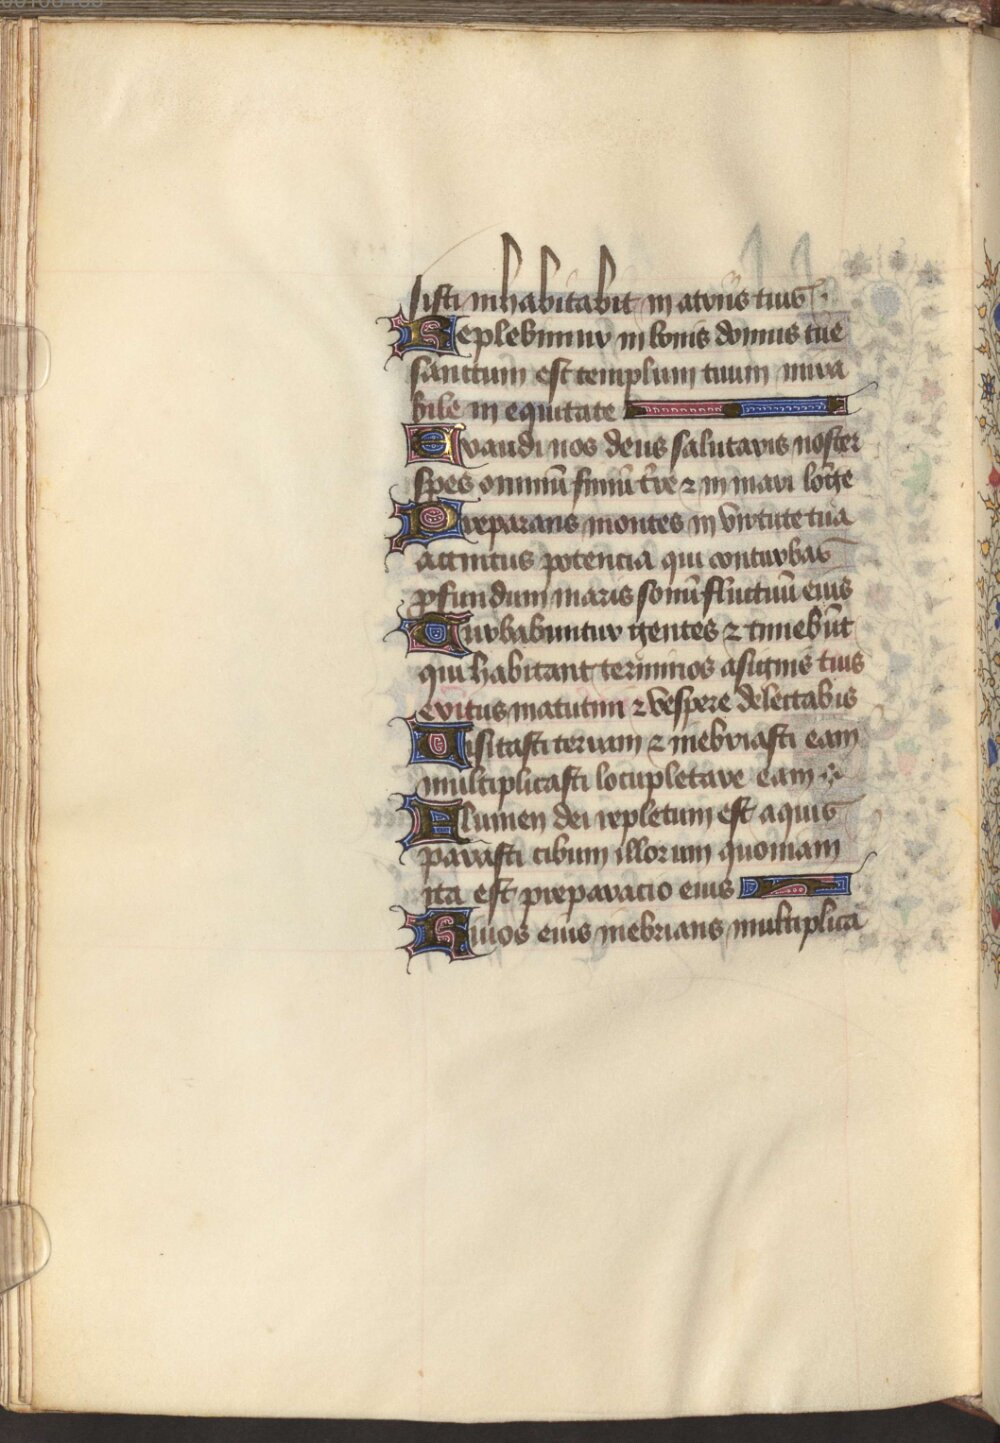 sisti inhabitabit in atriis tuis
Replebimur in bonis domus tue
sanctum est templum tuum mira
bile in equitate
Exaudi nos deus salutaris noster
spes omniū finiū tr̄e ⁊ in mari lōge
Preparans montes in virtute tua
accinctus potencia qui conturbas
ꝓfundum maris sonū fluctuū eius
Turbabuntur gentes ⁊ timebūt
qui habitant terminos a signis tuis
exitus matutini ⁊ vespere delectabis
Visitasti terram ⁊ inebriasti eam
multiplicasti locupletare eam
Flumen dei repletum est aquis
parasti cibum illorum quoniam
ita est preparacio eius
Rivos eius inebrians multiplica